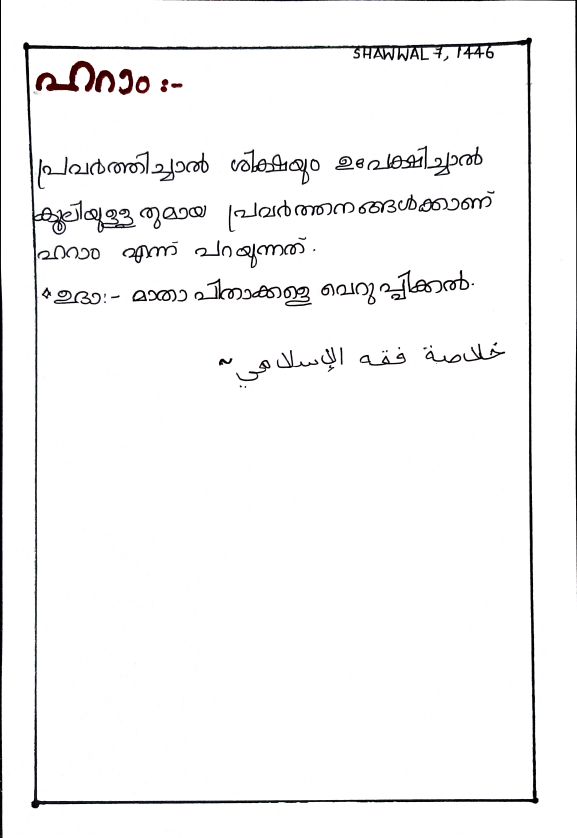 SHAWWAL 7, 1446
ഹറാം :-
പ്രവർത്തിച്ചാൽ ശിക്ഷയും ഉപേക്ഷിച്ചാൽ
കൂലിയുള്ളതുമായ പ്രവർത്തനങ്ങൾക്കാണ്
ഹറാം എന്ന് പറയുന്നത്.
* ഉദാ:- മാതാപിതാക്കളെ വെറുപ്പിക്കൽ.
خلاصة فقه الإسلامي ~